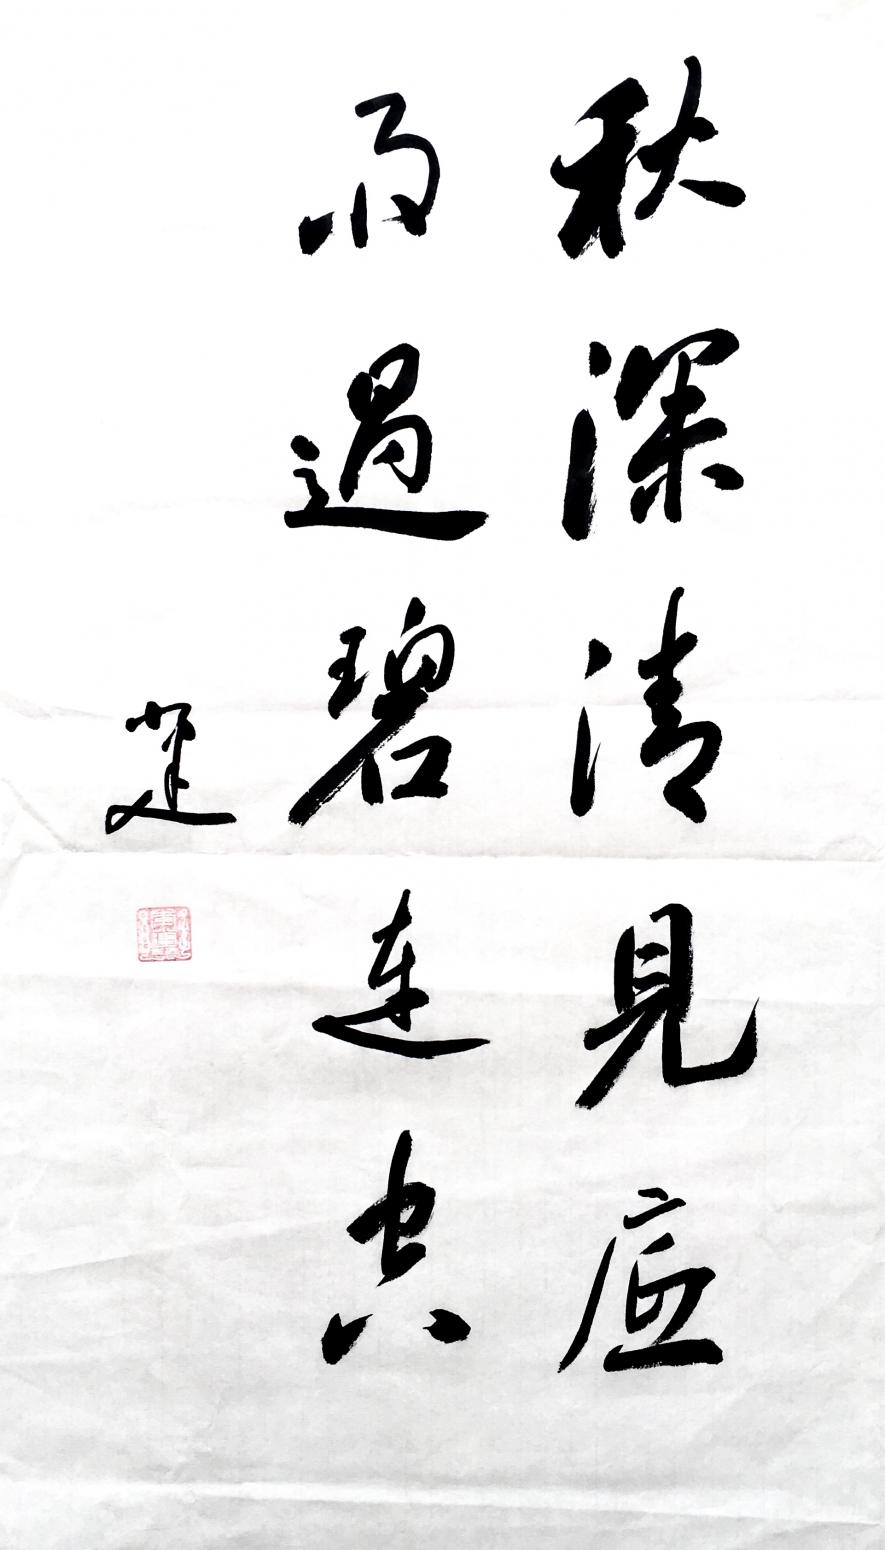 秋深清見底
雨過碧連空